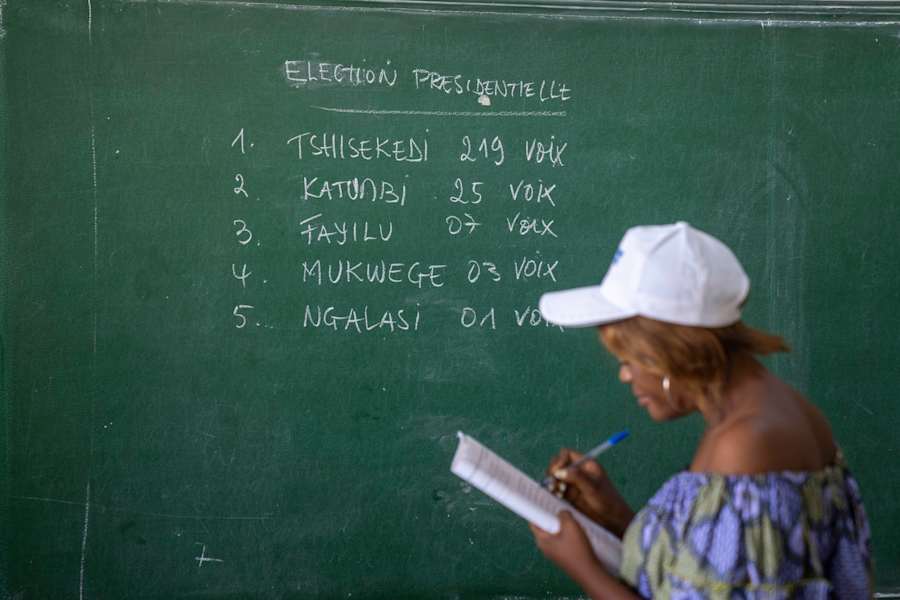 ELECTION PRESIDENTIELLE
1. TSHISEKEDI 219 VOIX
2. KATUMBI 25 VOIX
3. FAYILU 07 VOIX
4. MUKWEGE 03 VOIX
5. NGALASI 01 VOIX